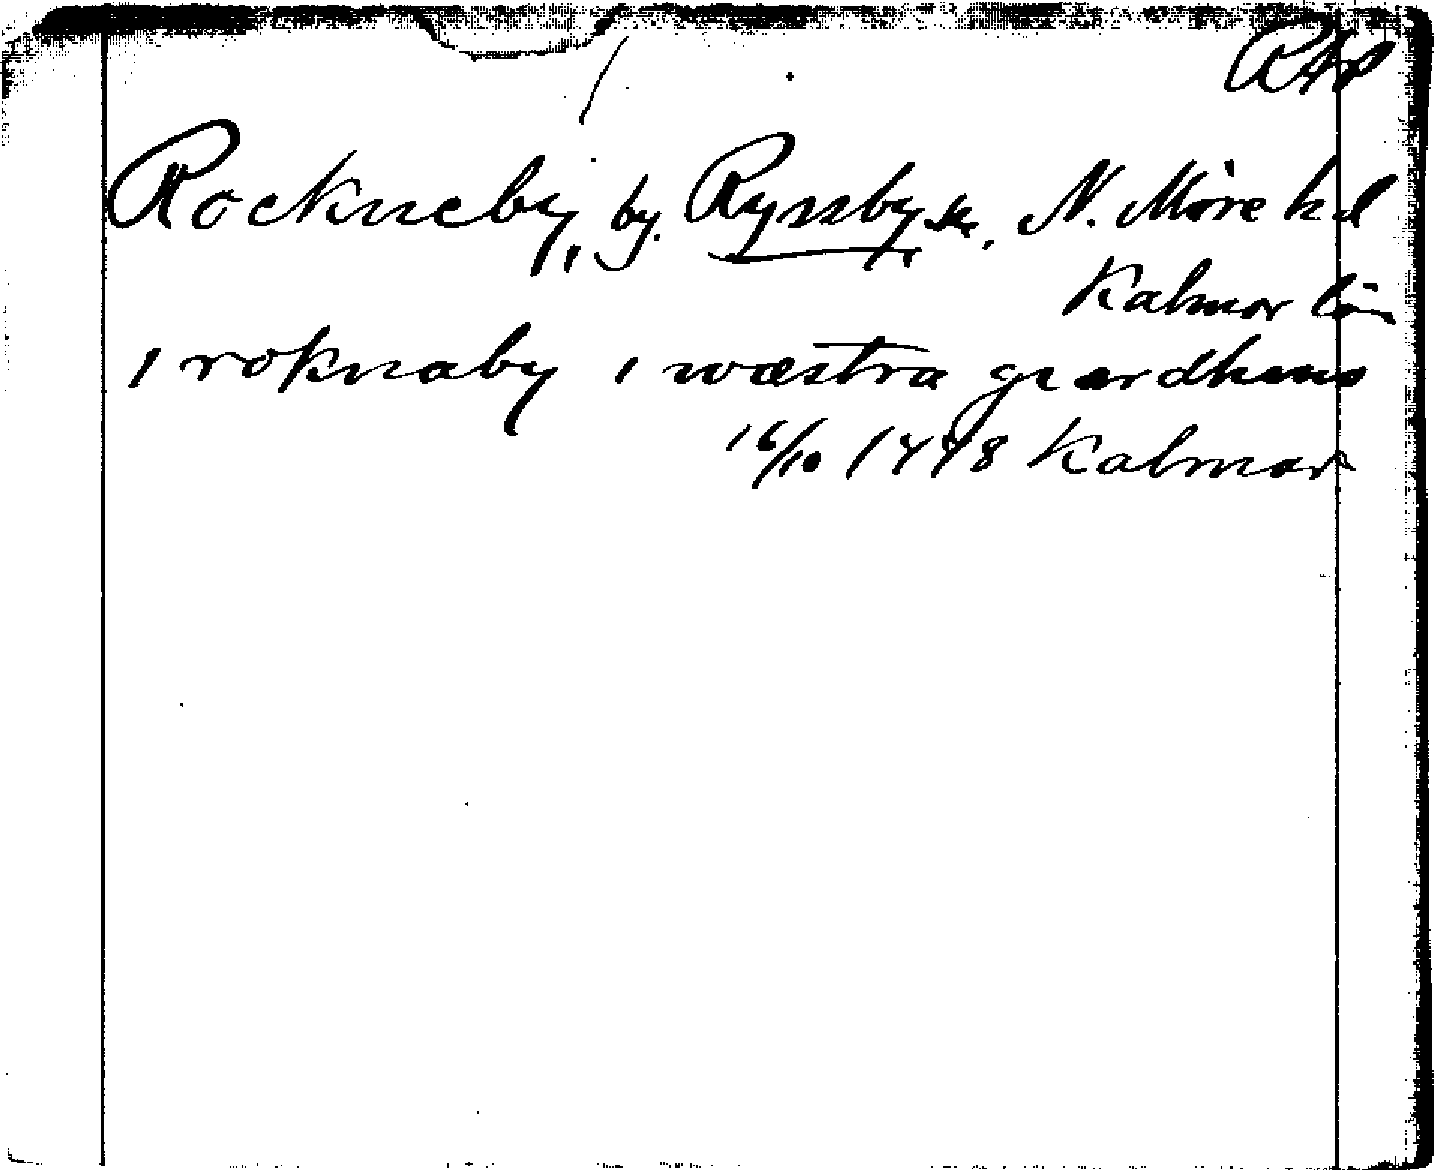 RAp
Rockneby, by. Ryssby sn, N. Möre hd
Kalmar län
i roknaby i wæstra
16/10 1448 Kalmar